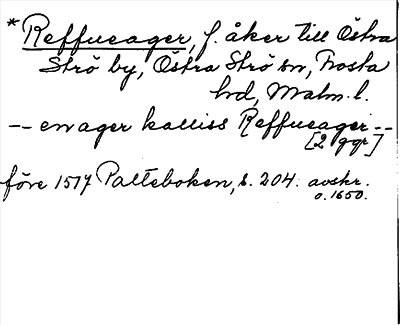 * Reffueager, f. åker till Östra
Strö by, Östra Strö sn, Frosta
hd, Malm. l.
-- en ager kalliss Reffueager --
[2 ggr]
före 1517 Palteboken, s. 204. avskr.
o. 1650.